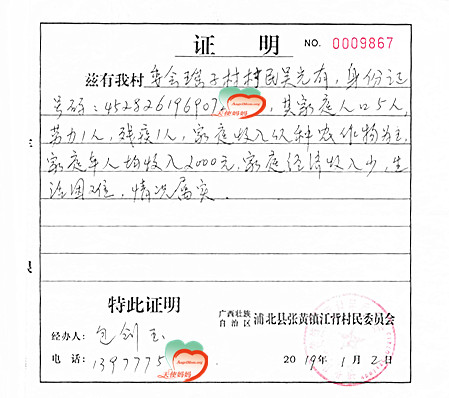 证 明 NO. 0009867
兹有我村委会瑶子村村民吴先有，身份证
号码：452826196907，其家庭人口5人
劳力1人，残疾1人，家庭收入以种农作物为主，
家庭年人均收入2000元，家庭经济收入少，生
活困难，情况属实.
特此证明
广西壮族自治区 浦北县张黄镇江背村民委员会
经办人：包剑玉
电 话：1397775
天使妈妈
2019年1月2日